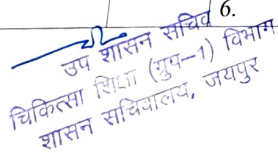 6.
उप शासन सचिव
चिकित्सा शिक्षा (ग्रुप-1) विभाग
शासन सचिवालय, जयपुर